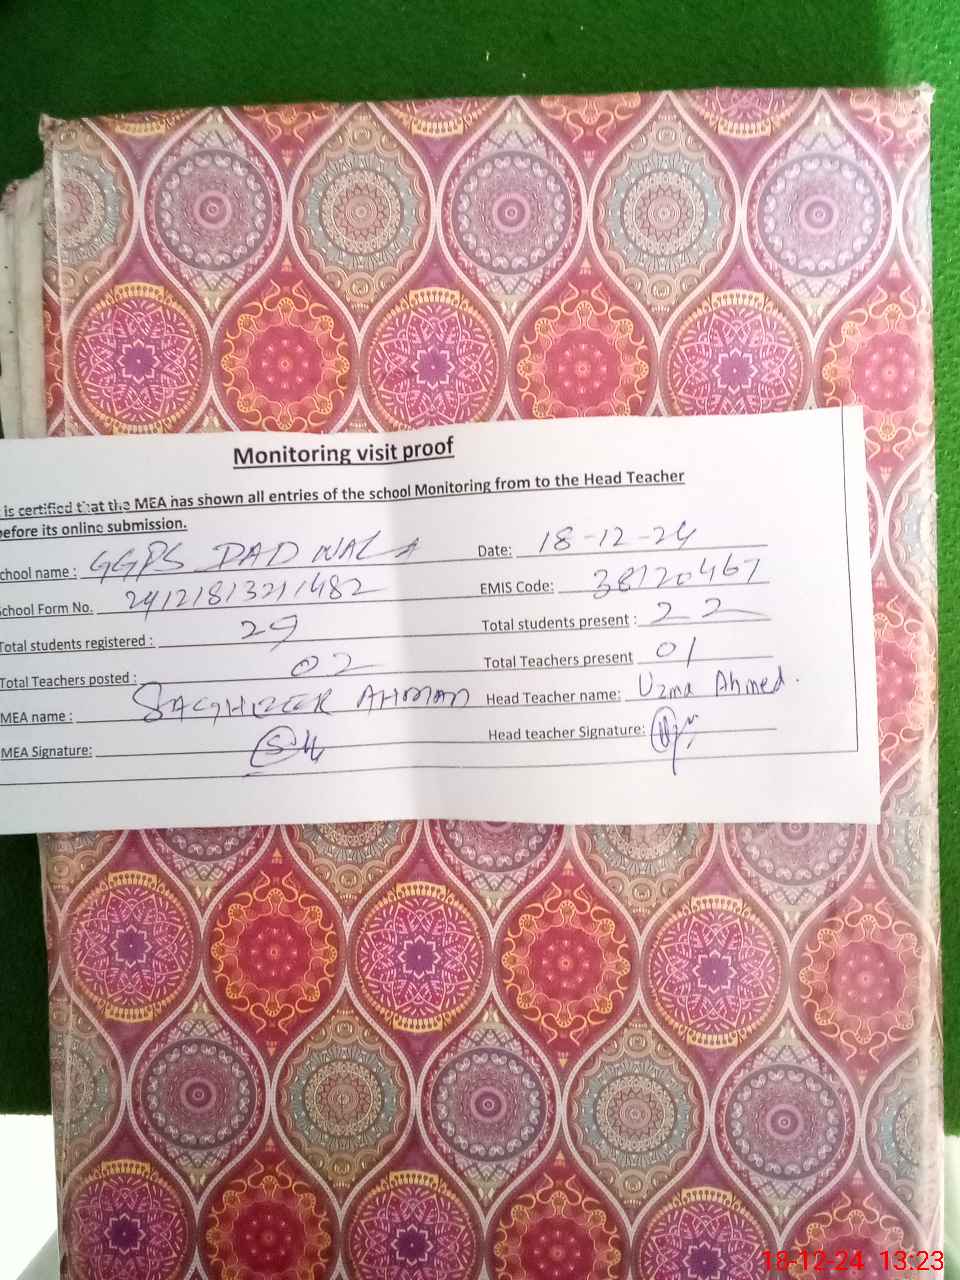 Monitoring visit proof
is certified that the MEA has shown all entries of the school Monitoring from to the Head Teacher
before its online submission.
chool name : GGPS DAD WALA Date: 18-12-24
School Form No. 24121813211482 EMIS Code: 38120467
Total students registered : 29 Total students present : 22
Total Teachers posted : 02 Total Teachers present 01
MEA name : SAGHEER AHMAD Head Teacher name: Uzma Ahmed.
MEA Signature: Head teacher Signature:
18-12-24 13:23